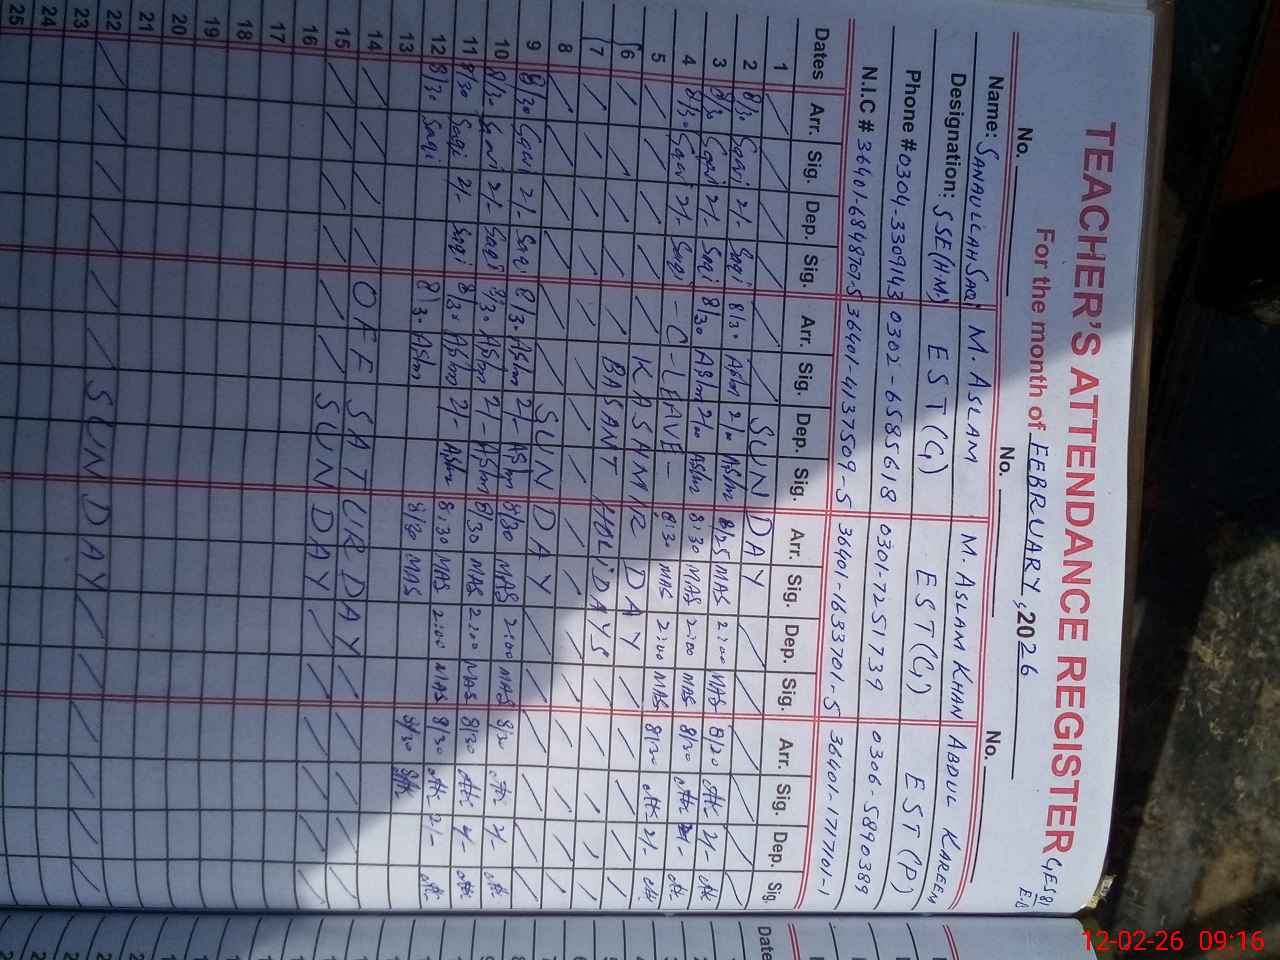 TEACHER'S ATTENDANCE REGISTER GES 81
For the month of FEBRUARY, 2026
No. No. No.
Name: SANAULLAH SAQI M. ASLAM M. ASLAM KHAN ABDUL KAREEM
Designation: SSE(HM) EST(G) EST(G) EST(P)
Phone # 0304-3309143 0302-6585618 0301-7251739 0306-5890389
N.I.C # 36401-6848707-5 36401-4137509-5 36401-1633701-5 36401-1717101-1
Dates Arr. Sig. Dep. Sig. Arr. Sig. Dep. Sig. Arr. Sig. Dep. Sig. Arr. Sig. Dep. Sig.
1 SUNDAY
2 8/30 Saqi 2/- Saqi 8/30 Aslm 2/00 Aslm 8/25 MAS 2:00 MAS 8/30 2/-
3 8/30 Saqi 2/- Saqi 8/30 Aslm 2/00 Aslm 8:30 MAS 2:00 MAS 8/30
4 8/30 Saqi 2/- Saqi - C-LEAVE - 8:30 MAS 2:00 MAS 8/30 2/-
5 KASHMIR DAY
6 BASANT HOLIDAYS
7
8 SUNDAY
9 8/30 Saqi 2/- Saqi 8/30 Aslm 2/- Aslm 8/30 MAS 2:00 MAS 8/30 2/-
10 8/30 Saqi 2/- Saqi 8/30 Aslm 2/- Aslm 8/30 MAS 2:00 MAS 8/30 2/-
11 8/30 Saqi 2/- Saqi 8/30 Aslm 2/- Aslm 8:30 MAS 2:00 MAS 8/30 2/-
12 8/30 Saqi 8/30 Aslm 8/30 MAS 8/30
13
14 OFF SATURDAY
15 SUNDAY
16
17
18
19
20
21
22 SUNDAY
23
24
25
Date
12-02-26 09:16